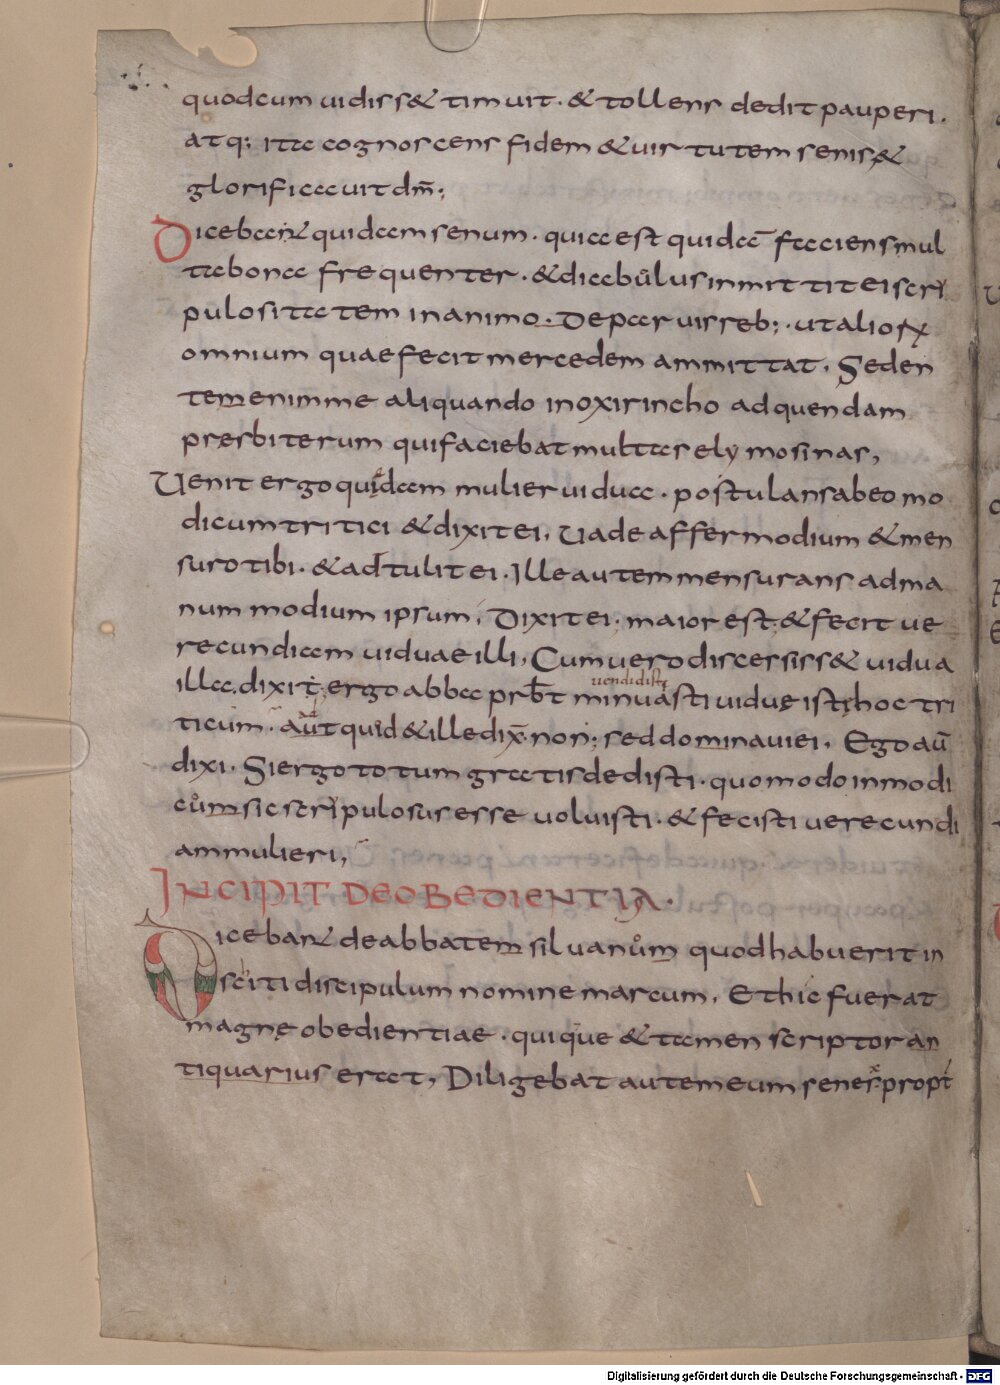 quodcum uidiss& timuit · & tollens dedit pauperi ·
atq; ita cognoscens fidem & uirtutem senis &
glorificauit dn̄m;
Diceban& quidam senum · quia est quidā faciens mul
ta bona frequenter · & diabulus inmittit ei scri
pulositatem in animo · De paruis reb; · ut aliorum
omnium quae fecit mercedem ammittat · Seden
tem enim me aliquando in oxirincho ad quendam
presbiterum qui faciebat multas elymosinas,
Uenit ergo quędam mulier uidua · postulans ab eo mo
dicum tritici & dixit ei, Uade affer modium & men
suro tibi · & adtulit ei · Ille autem mensurans ad ma
num modium ipsum, Dixit ei; maior est & fecit ue
recundiam uiduae illi, Cum uero discersiss& uidua
illa, dixi; ergo abba prb̄t minuasti uiduę istę hoc tri
uendidisti
ticum · aut quid & ille dix̄ · non; sed dominaui ei, Ego aū
dixi · Si ergo totum gratis dedisti · quomodo in modi
cum sic scripulosus esse uoluisti · & fecisti uerecundi
am mulieri,
INCIPIT DE OBEDIENTIA ·
Diceban& de abbatem siluanum quod habuerit in
sciti discipulum nomine marcum, Et hic fuerat
magnę obedientiae · quique & tamen scriptor an
tiquarius erat, Diligebat autem eum senex propt
Digitalisierung gefördert durch die Deutsche Forschungsgemeinschaft - DFG